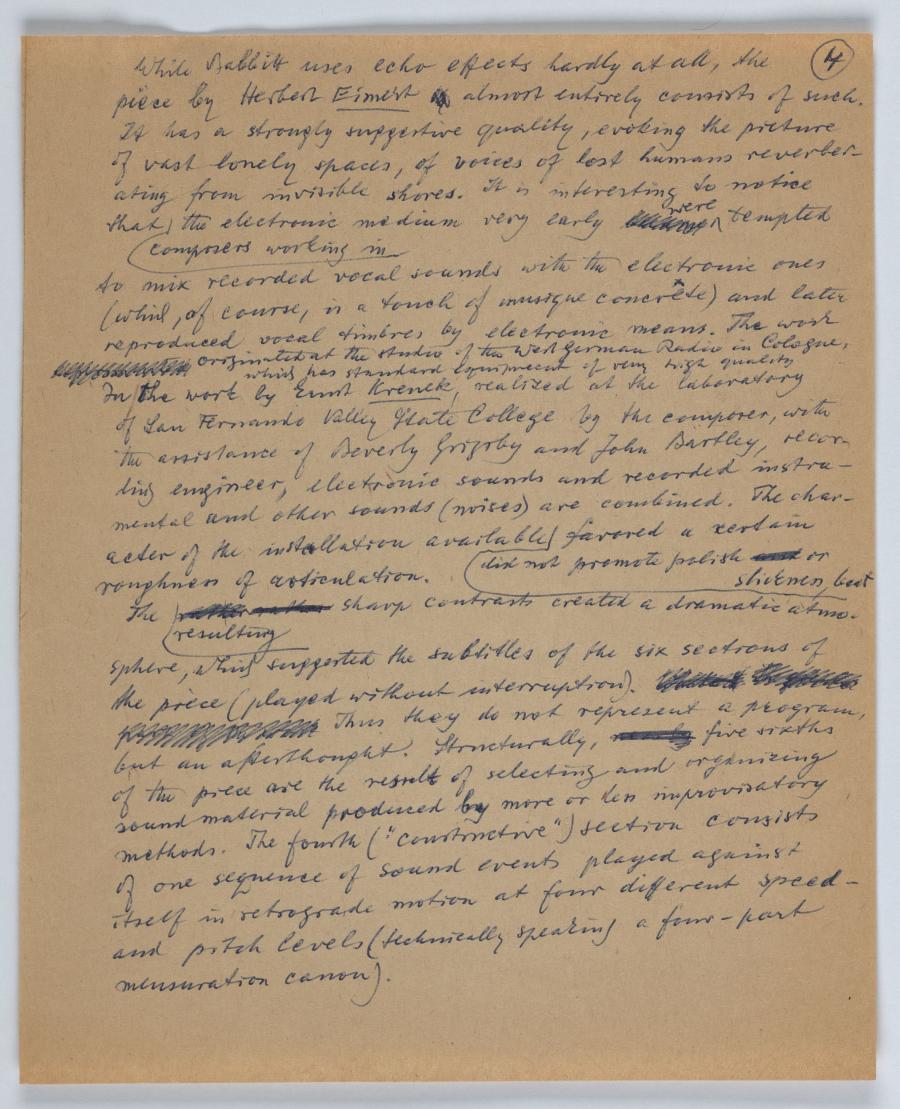 4
While Babbitt uses echo effects hardly at all, the
piece by Herbert Eimert almost entirely consists of such.
It has a strongly suggestive quality, evoking the picture
of vast lonely spaces, of voices of lost humans reverber-
ating from invisible shores. It is interesting to notice
that the electronic medium very early were tempted
composers working in
to mix recorded vocal sounds with the electronic ones
(which, of course, is a touch of musique concrète) and later
reproduced vocal timbres by electronic means. The work
originated at the studio of the West German Radio in Cologne,
which has standard equipment of very high quality
In the work by Ernst Krenek, realized at the laboratory
of San Fernando Valley State College by the composer, with
the assistance of Beverly Grigsby and John Bartley, recor-
ding engineer, electronic sounds and recorded instru-
mental and other sounds (noises) are combined. The char-
acter of the installation available favored a certain
did not promote polish or
roughness of articulation.
slickness, but
The sharp contrasts created a dramatic atmo-
resulting
sphere, which suggested the subtitles of the six sections of
the piece (played without interruption).
Thus they do not represent a program,
but an afterthought. Structurally, five sixths
of the piece are the result of selecting and organizing
sound material produced by more or less improvisatory
methods. The fourth ("constructive") section consists
of one sequence of sound events played against
itself in retrograde motion at four different speed-
and pitch levels (technically speaking a four-part
mensuration canon).